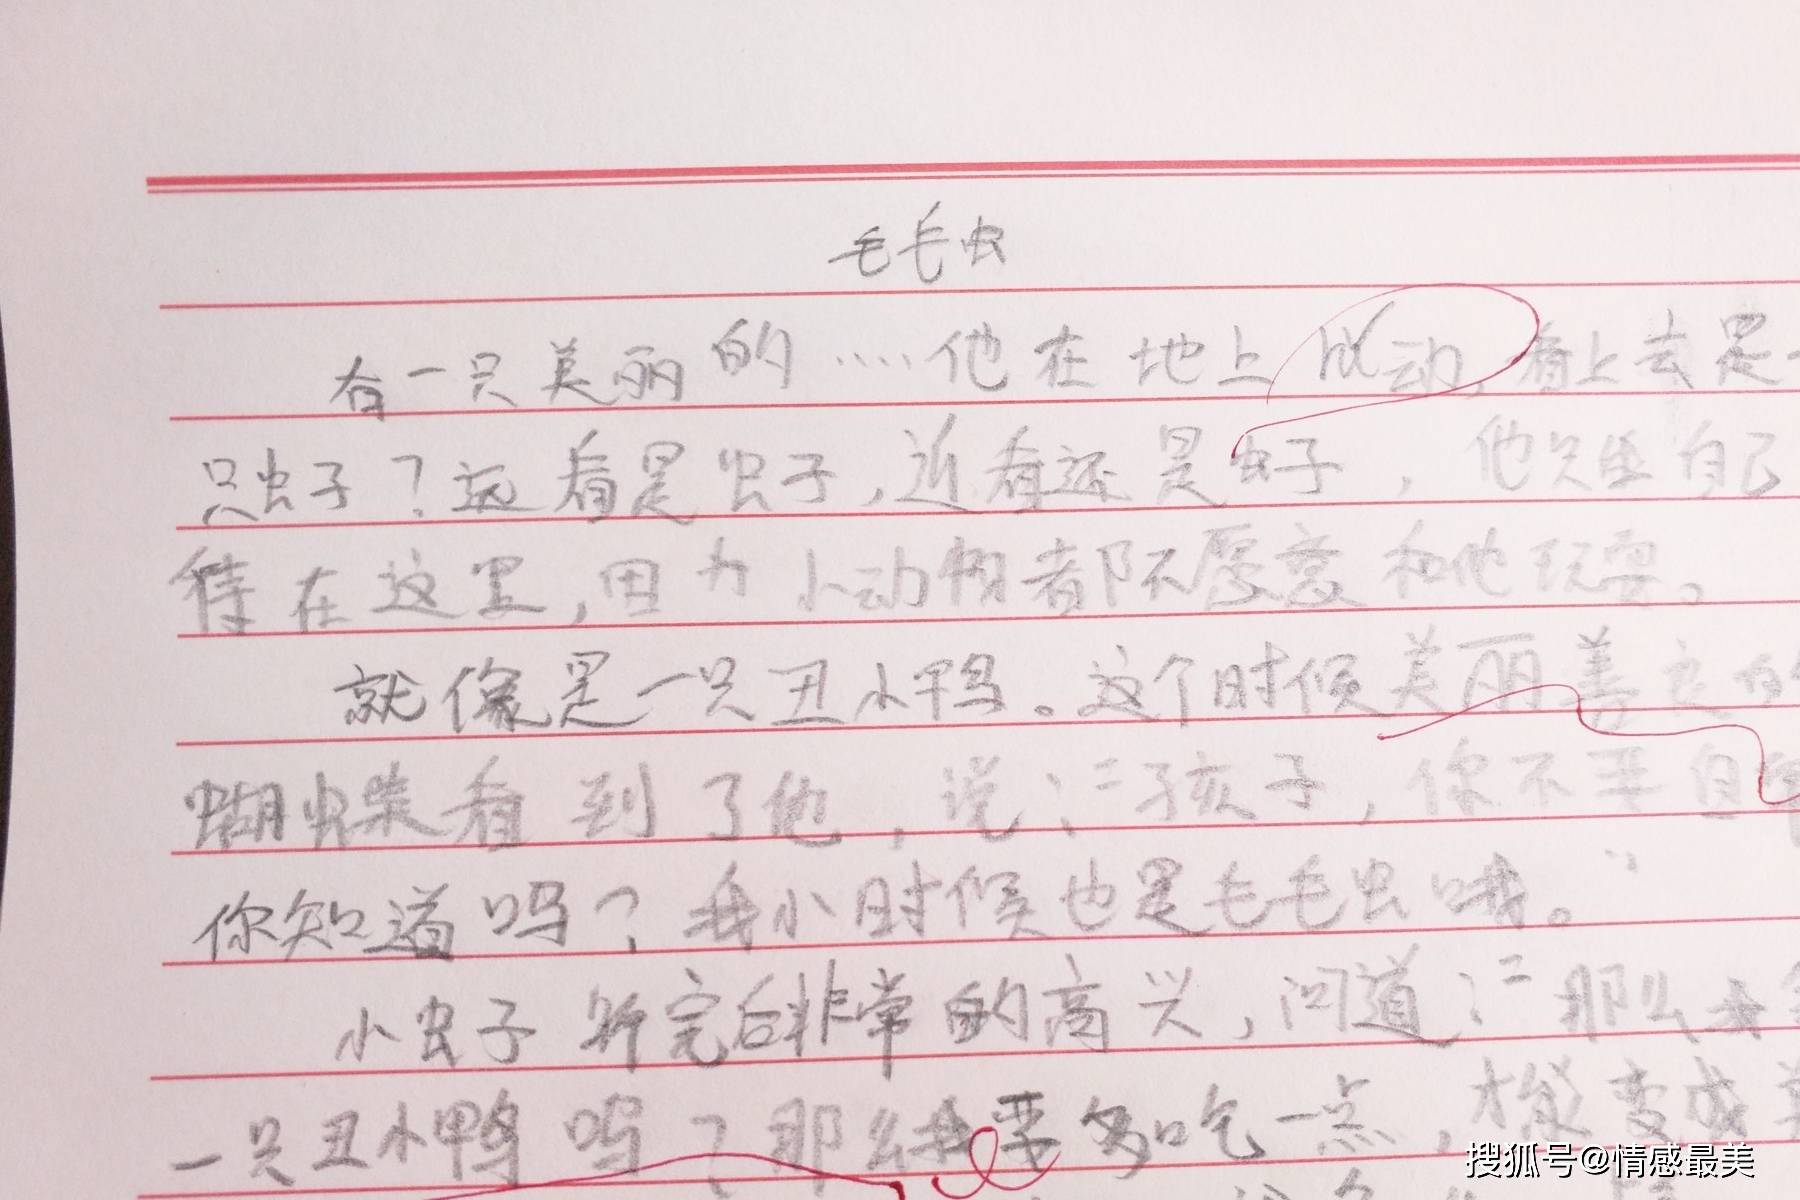 毛毛虫
有一只美丽的……他在地上 动，看上去是一
只虫子？远看是虫子，近看还是虫子，他只 自己
待在这里，因为小动物都不愿意和他玩耍。
就像是一只丑小鸭。这个时候美丽善良的
蝴蝶看到了他，说："孩子，你不要自卑
你知道吗？我小时候也是毛毛虫哦。"
小虫子听完后非常的高兴，问道："那么我
一只丑小鸭吗？那么我要多吃一点，才能变成
搜狐号@情感最美